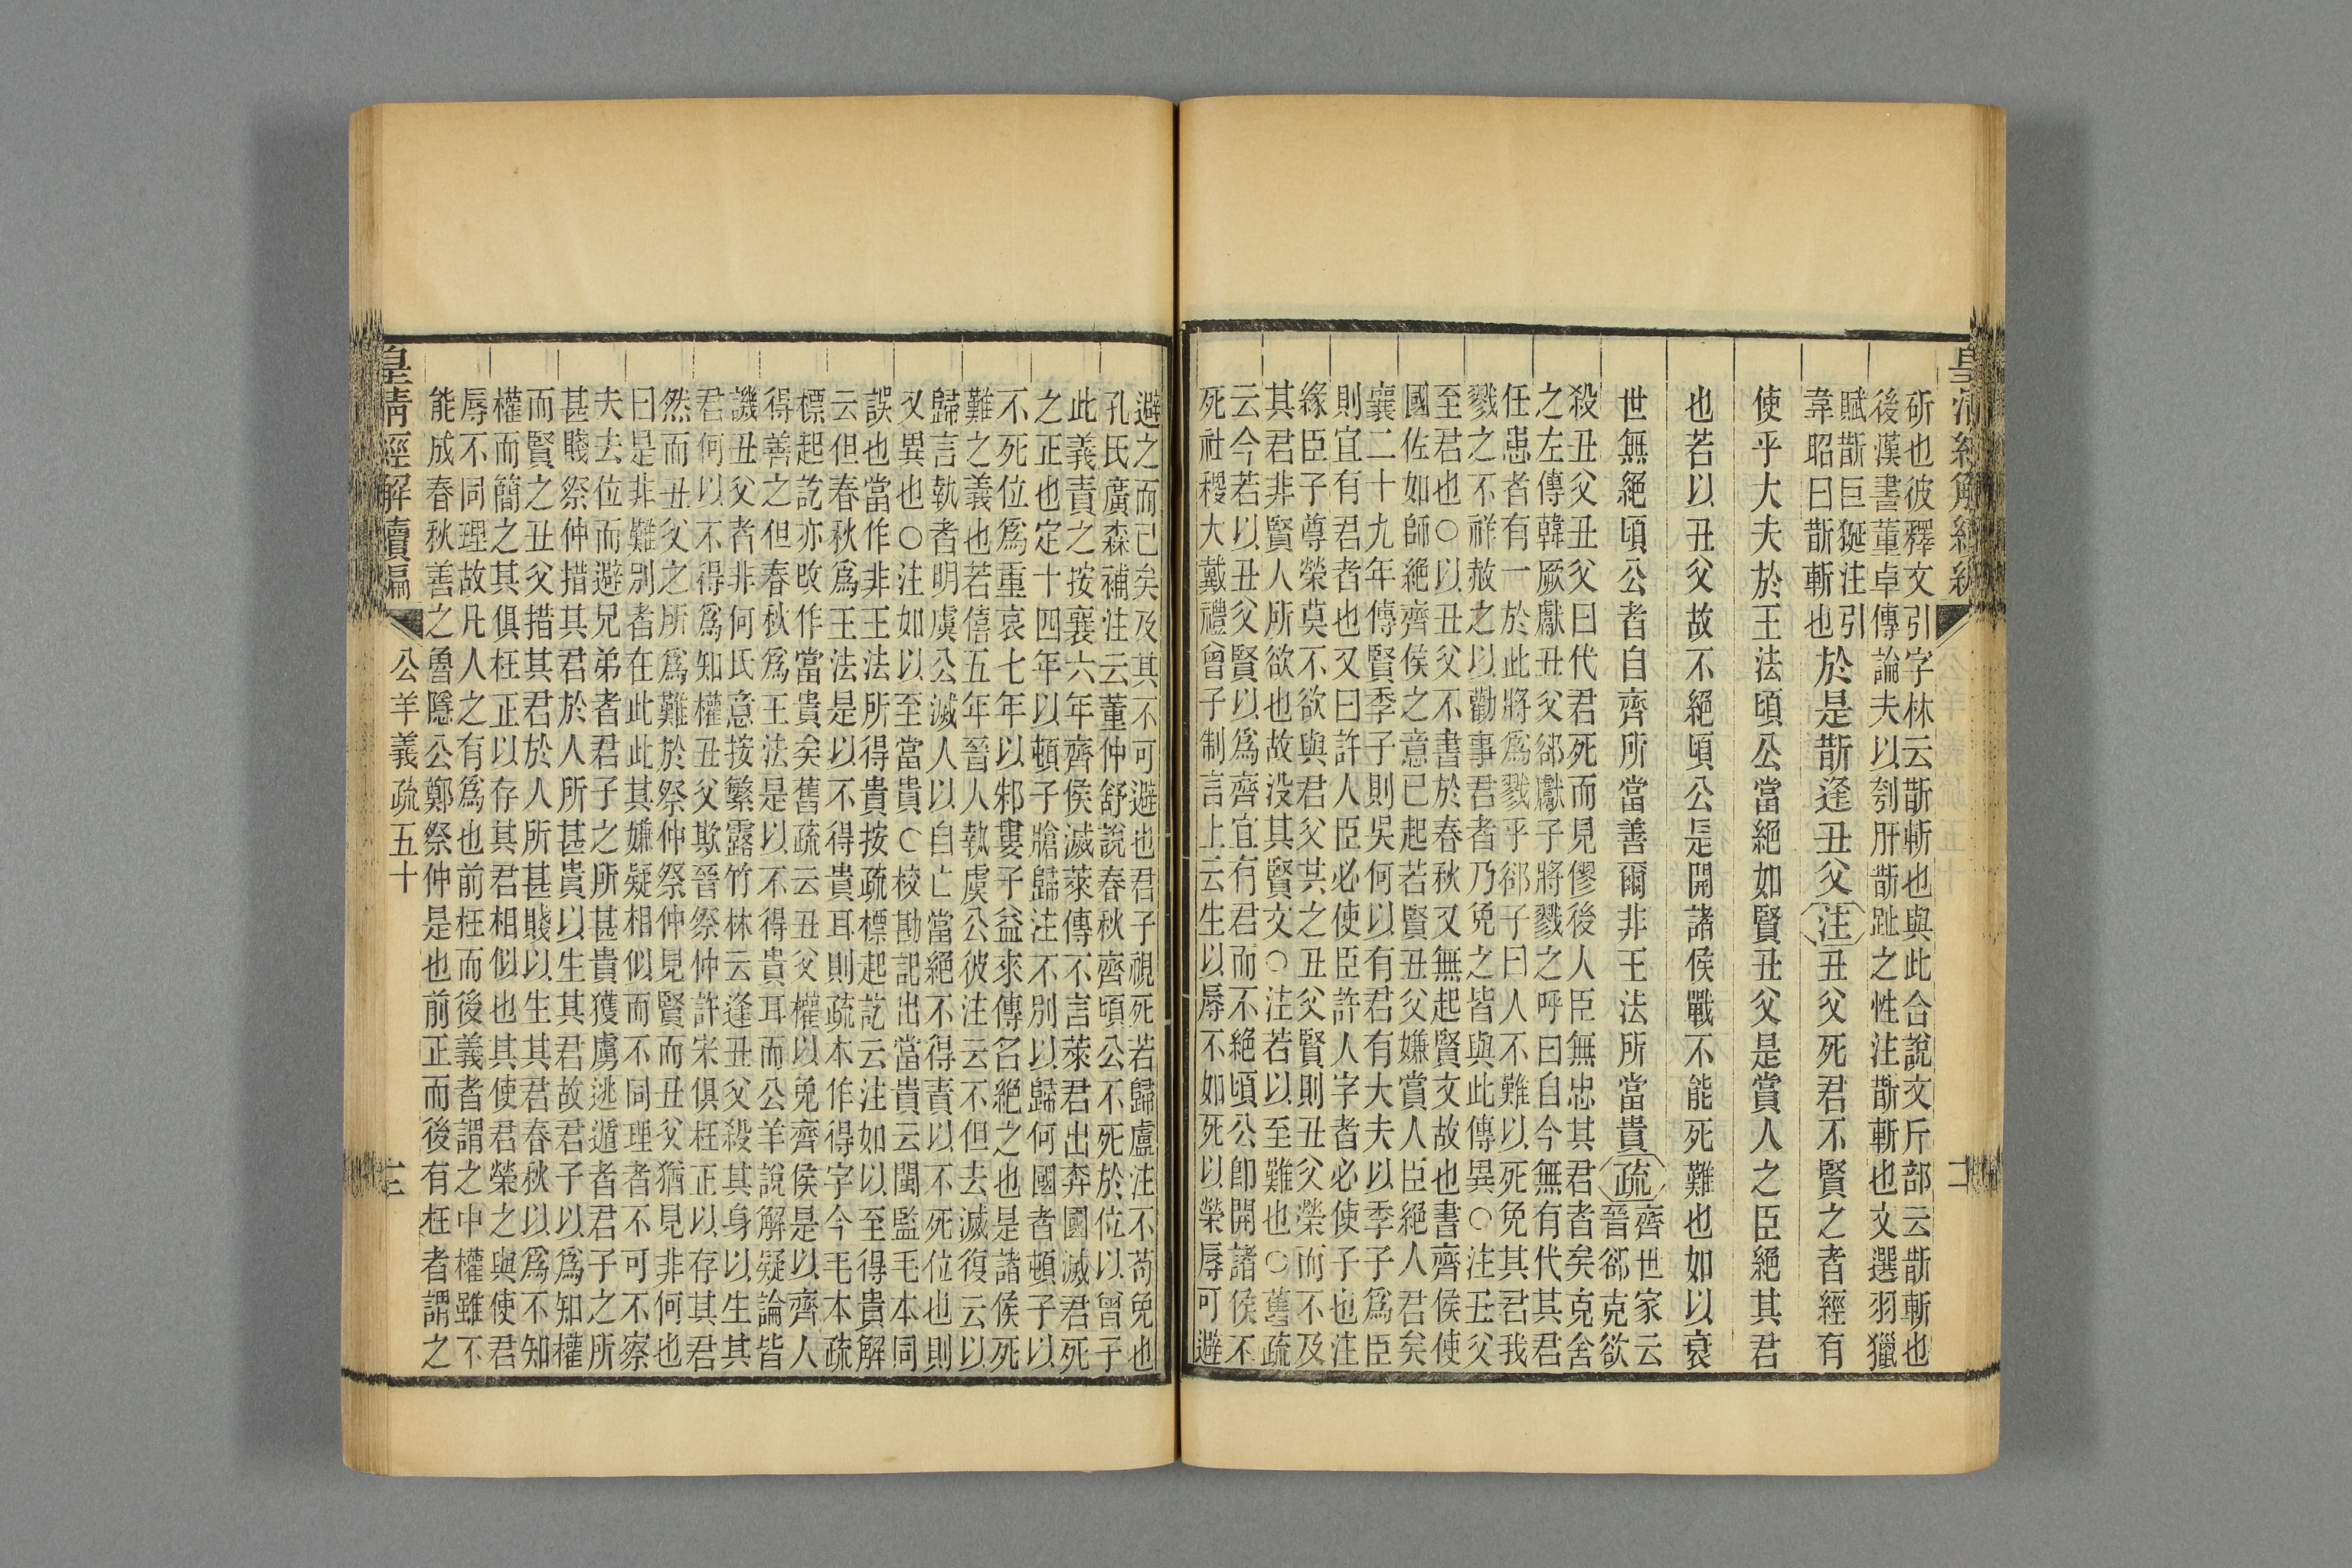 斫也彼釋文引字林云斮斬也與此合說文斤部云斮斬也
後漢書董卓傳論夫以刳肝斮趾之性注斮斬也文選羽獵
賦斮巨狿注引
韋昭曰斮斬也
於是斮逢丑父注丑父死君不賢之者經有
使乎大夫於王法頃公當絕如賢丑父是賞人之臣絕其君
也若以丑父故不絕頃公是開諸侯戰不能死難也如以衰
世無絕頃公者自齊所當善爾非王法所當貴疏
齊世家云
晉郤克欲
殺丑父丑父曰代君死而見僇後人臣無忠其君者矣克舍
之左傳韓厥獻丑父郤獻子將戮之呼曰自今無有代其君
任患者有一於此將爲戮乎郤子曰人不難以死免其君我
戮之不祥赦之以勸事君者乃免之皆與此傳異○注丑父
至君也○以丑父不書於春秋又無起賢文故也書齊侯使
國佐如師絕齊侯之意已起若賢丑父嫌賞人臣絕人君矣
襄二十九年傳賢季子則吳何以有君有大夫以季子爲臣
則宜有君者也又曰許人臣必使臣許人字者必使子也注
緣臣子尊榮莫不欲與君父共之丑父賢則丑父榮而不及
其君非賢人所欲也故没其賢文○注若以至難也○舊疏
云今若以丑父賢以爲齊宜有君而不絕頃公卽開諸侯不
死社稷大戴禮曾子制言上云生以辱不如死以榮辱可避
避之而已矣及其不可避也君子視死若歸盧注不苟免也
孔氏廣森補注云董仲舒說春秋齊頃公不死於位以曾子
此義責之按襄六年齊侯滅萊傳不言萊君出奔國滅君死
之正也定十四年以頓子牄歸注不別以歸何國者頓子以
不死位爲重哀七年以邾婁子益來傳名絕之也是諸侯死
難之義也若僖五年晉人執虞公彼注云不但去滅復云以
歸言執者明虞公滅人以自亡當絕不得責以不死位也則
又異也○注如以至當貴○校勘記出當貴云閩監毛本同
誤也當作非王法所得貴按疏標起訖云注如以至得貴解
云但春秋爲王法是以不得貴耳則疏本作得字今毛本疏
標起訖亦改作當貴矣舊疏云丑父權以免齊侯是以齊人
得善之但春秋爲王法是以不得貴耳而公羊說解疑論皆
譏丑父者非何氏意按繁露竹林云逢丑父殺其身以生其
君何以不得爲知權丑父欺晉祭仲許宋俱枉正以存其君
然而丑父之所爲難於祭仲祭仲見賢而丑父猶見非何也
曰是非難別者在此此其嫌疑相似而不同理者不可不察
夫去位而避兄弟者君子之所甚貴獲虜逃遁者君子之所
甚賤祭仲措其君於人所甚貴以生其君故君子以爲知權
而賢之丑父措其君於人所甚賤以生其君春秋以爲不知
權而簡之其俱枉正以存其君相似也其使君榮之與使君
辱不同理故凡人之有爲也前枉而後義者謂之中權雖不
能成春秋善之魯隱公鄭祭仲是也前正而後有枉者謂之
皇清經解續編
公羊義疏五十